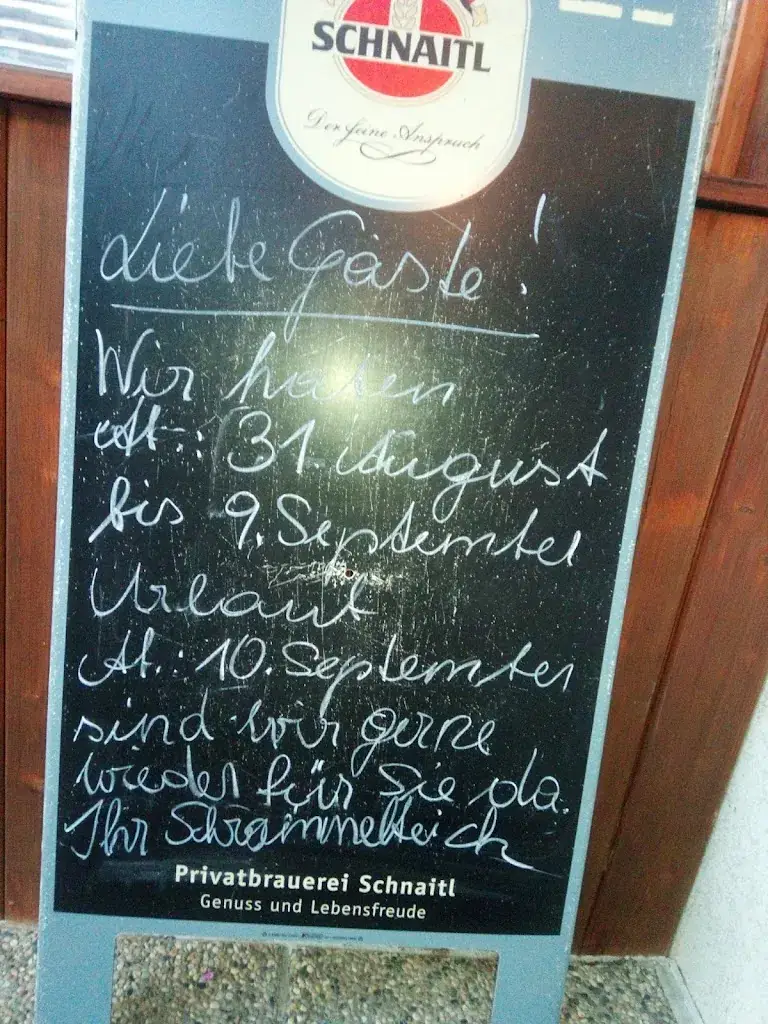 SCHNAITL
Der feine Anspruch
Liebe Gäste!
Wir haben
Ab.: 31. August
bis 9. September
Urlaub
Ab.: 10. September
sind wir gerne
wieder für Sie da.
Ihr
Privatbrauerei Schnaitl
Genuss und Lebensfreude